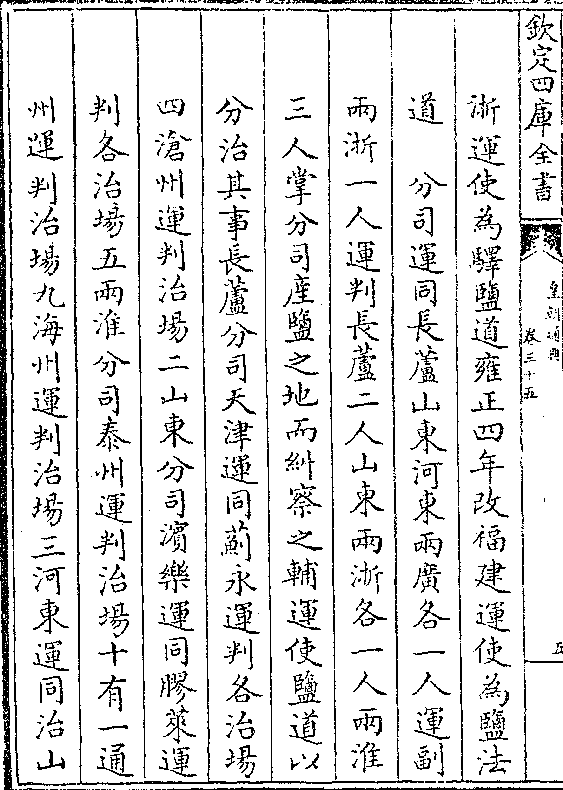 欽定四庫全書
皇朝通典
卷三十五
五
浙運使為驛鹽道雍正四年改福建運使為鹽法
道　分司運同長蘆山東河東兩廣各一人運副
兩浙一人運判長蘆二人山東兩浙各一人兩淮
三人掌分司産鹽之地而糾察之輔運使鹽道以
分治其事長蘆分司天津運同薊永運判各治場
四滄州運判治場二山東分司濱樂運同膠萊運
判各治場五兩淮分司泰州運判治場十有一通
州運判治場九海州運判治場三河東運同治山